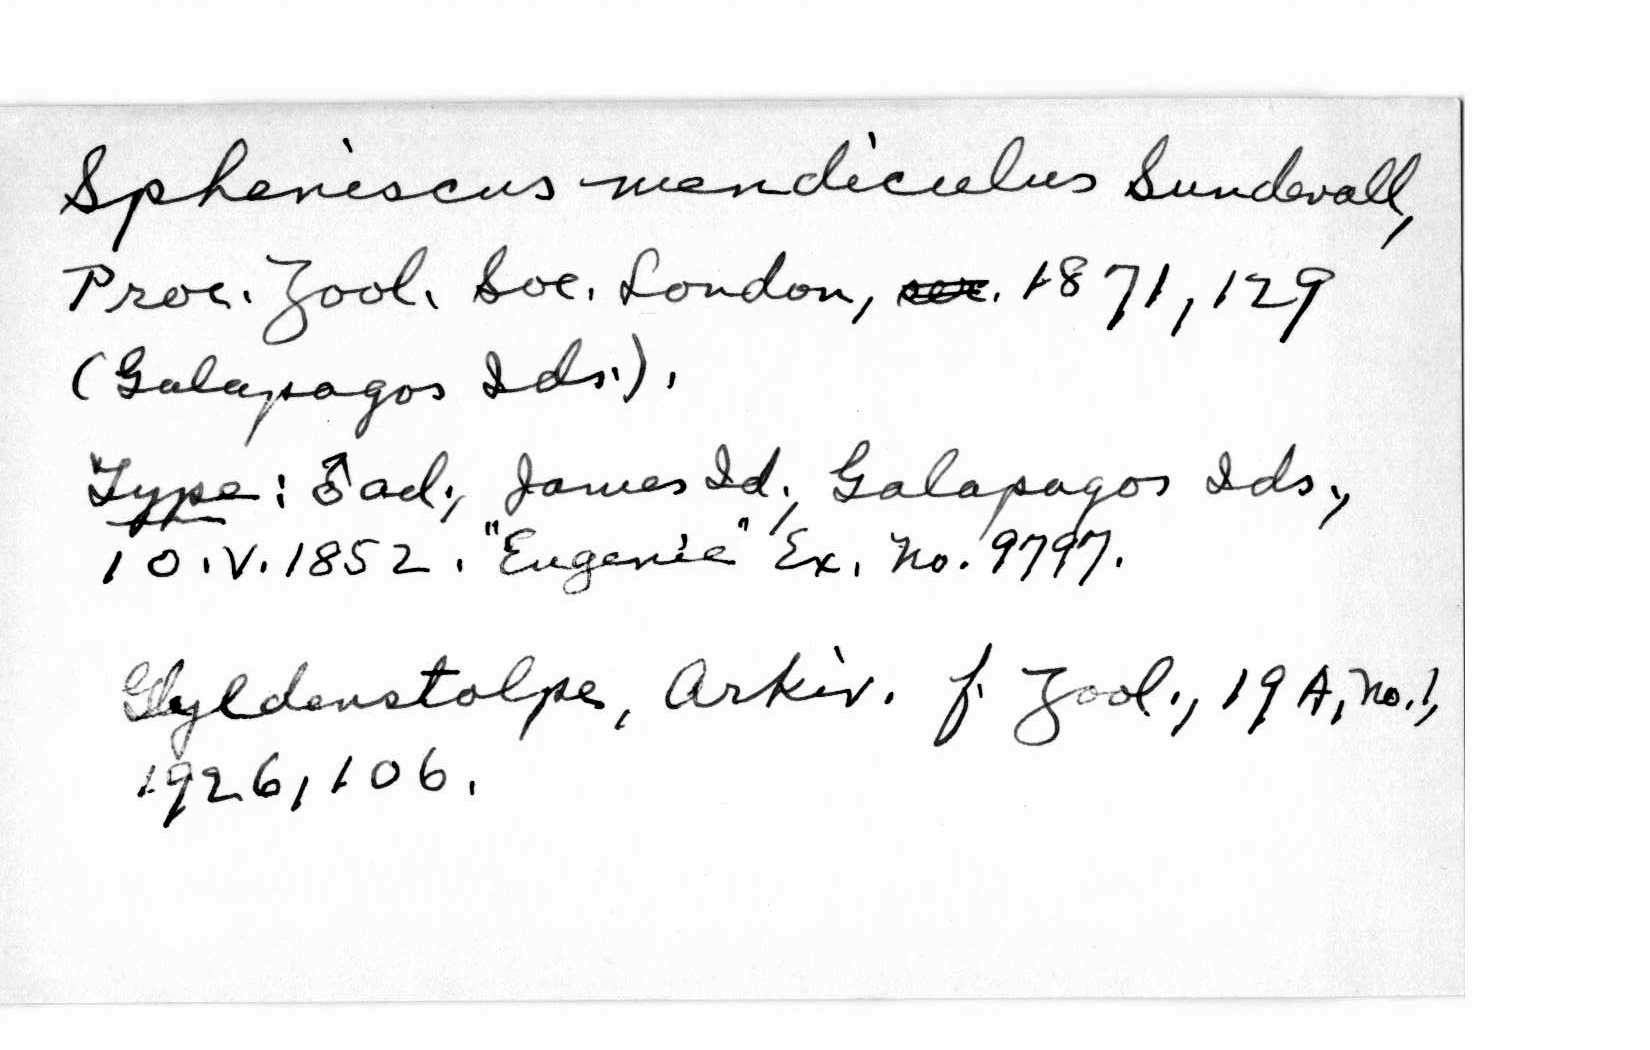 Spheniscus mendiculus Sundevall,
Proc. Zool. Soc. London, 1871, 129
(Galapagos Ids.).
Type: ♂ ad., James Id., Galapagos Ids.,
10.V.1852. "Eugenie" Ex. No. 9797.
Gyldenstolpe, Arkiv. f. Zool., 19A, No. 1,
1926, 106.